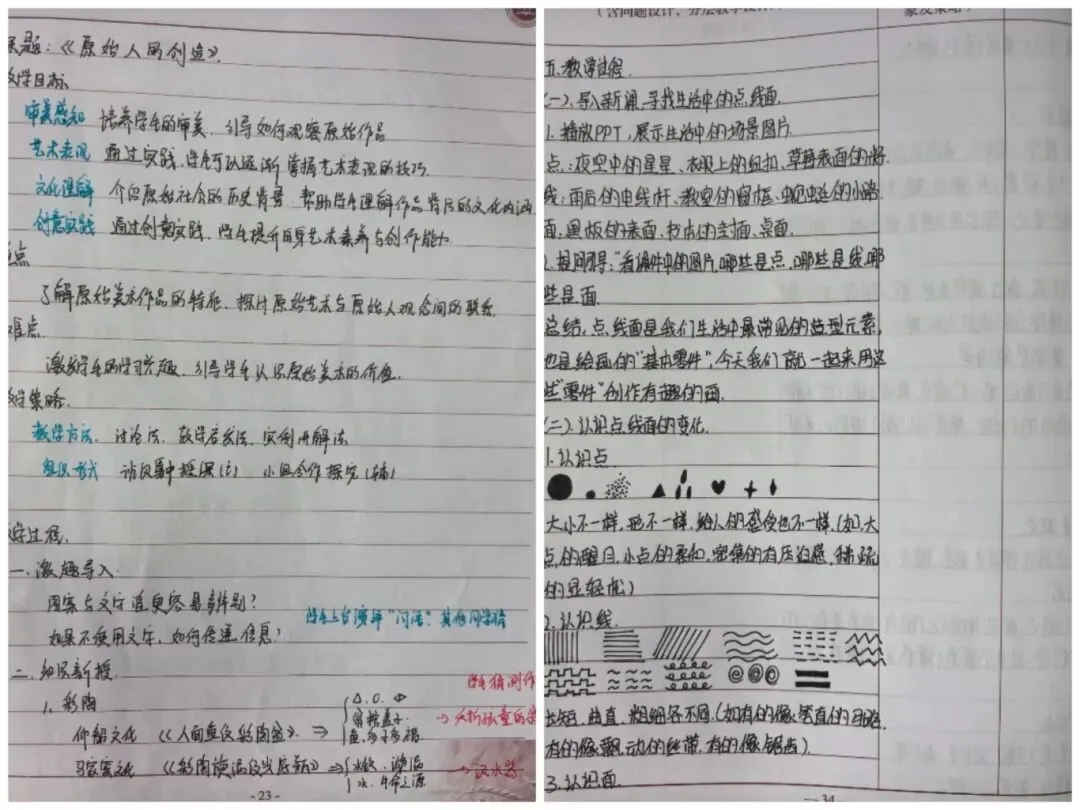 课题：《原始人的创造》
教学目标
审美感知 培养学生的审美，引导如何观察原始作品
艺术表现 通过实践，学生可以逐渐掌握艺术表现的技巧.
文化理解 介绍原始社会的历史背景，帮助学生理解作品背后的文化内涵
创意实践 通过创意实践，学生提升自身艺术素养与创作能力
重点
了解原始美术作品的特征，探讨原始艺术与原始人观念间的联系.
难点
激发学生的学习兴趣，引导学生认识原始美术的价值.
教学策略.
教学方法. 讨论法、教学启发法、实例讲解法
组织形式 班级集中授课(主) 小组合作探究(辅)
教学过程.
一.激趣导入.
图案与文字谁更容易辨别？
如果不使用文字，如何传递信息？
学生上台演单"词语"其他同学猜
二.知识新授.
1.彩陶
学生猜测作
仰韶文化《人面鱼纹彩陶盆》⇒
△.O.
鱼.多子多福.
→分析孩童的
马家窑文化《彩陶漩涡纹尖底瓶》⇒
水纹、漩涡
水.生命之源
→汲水器
- 23 -
(含问题设计，分层教学设计
五.教学过程.
(一).导入新课，寻找生活中的点线面.
1.播放PPT，展示生活中的场景图片.
点：夜空中的星星、衣服上的纽扣、草莓表面的籽.
线：雨后的电线杆、教室的窗框、蜿蜒的小路
面：黑板的表面、书本的封面、桌面.
2.提问："看课件中的图片，哪些是点，哪些是线，哪
些是面.
总结：点、线面是我们生活中最常见的造型元素，
也是绘画的"基本零件"，今天我们就一起来用这
些"零件"创作有趣的画.
(二).认识点线面的变化.
1.认识点
大小不一样，形不一样，给人的感受也不一样.(如大
点的醒目，小点的柔和，密集的有压迫感，稀疏
的显轻松)
2.认识线.
长短、曲直、粗细各不同.(如有的像笔直的马路，
有的像飘动的丝带，有的像锯齿).
3.认识面.
- 34